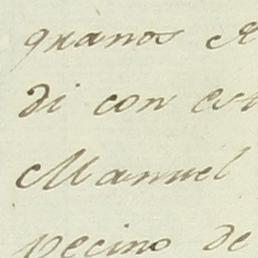 granos
di con
Manuel
vecino de